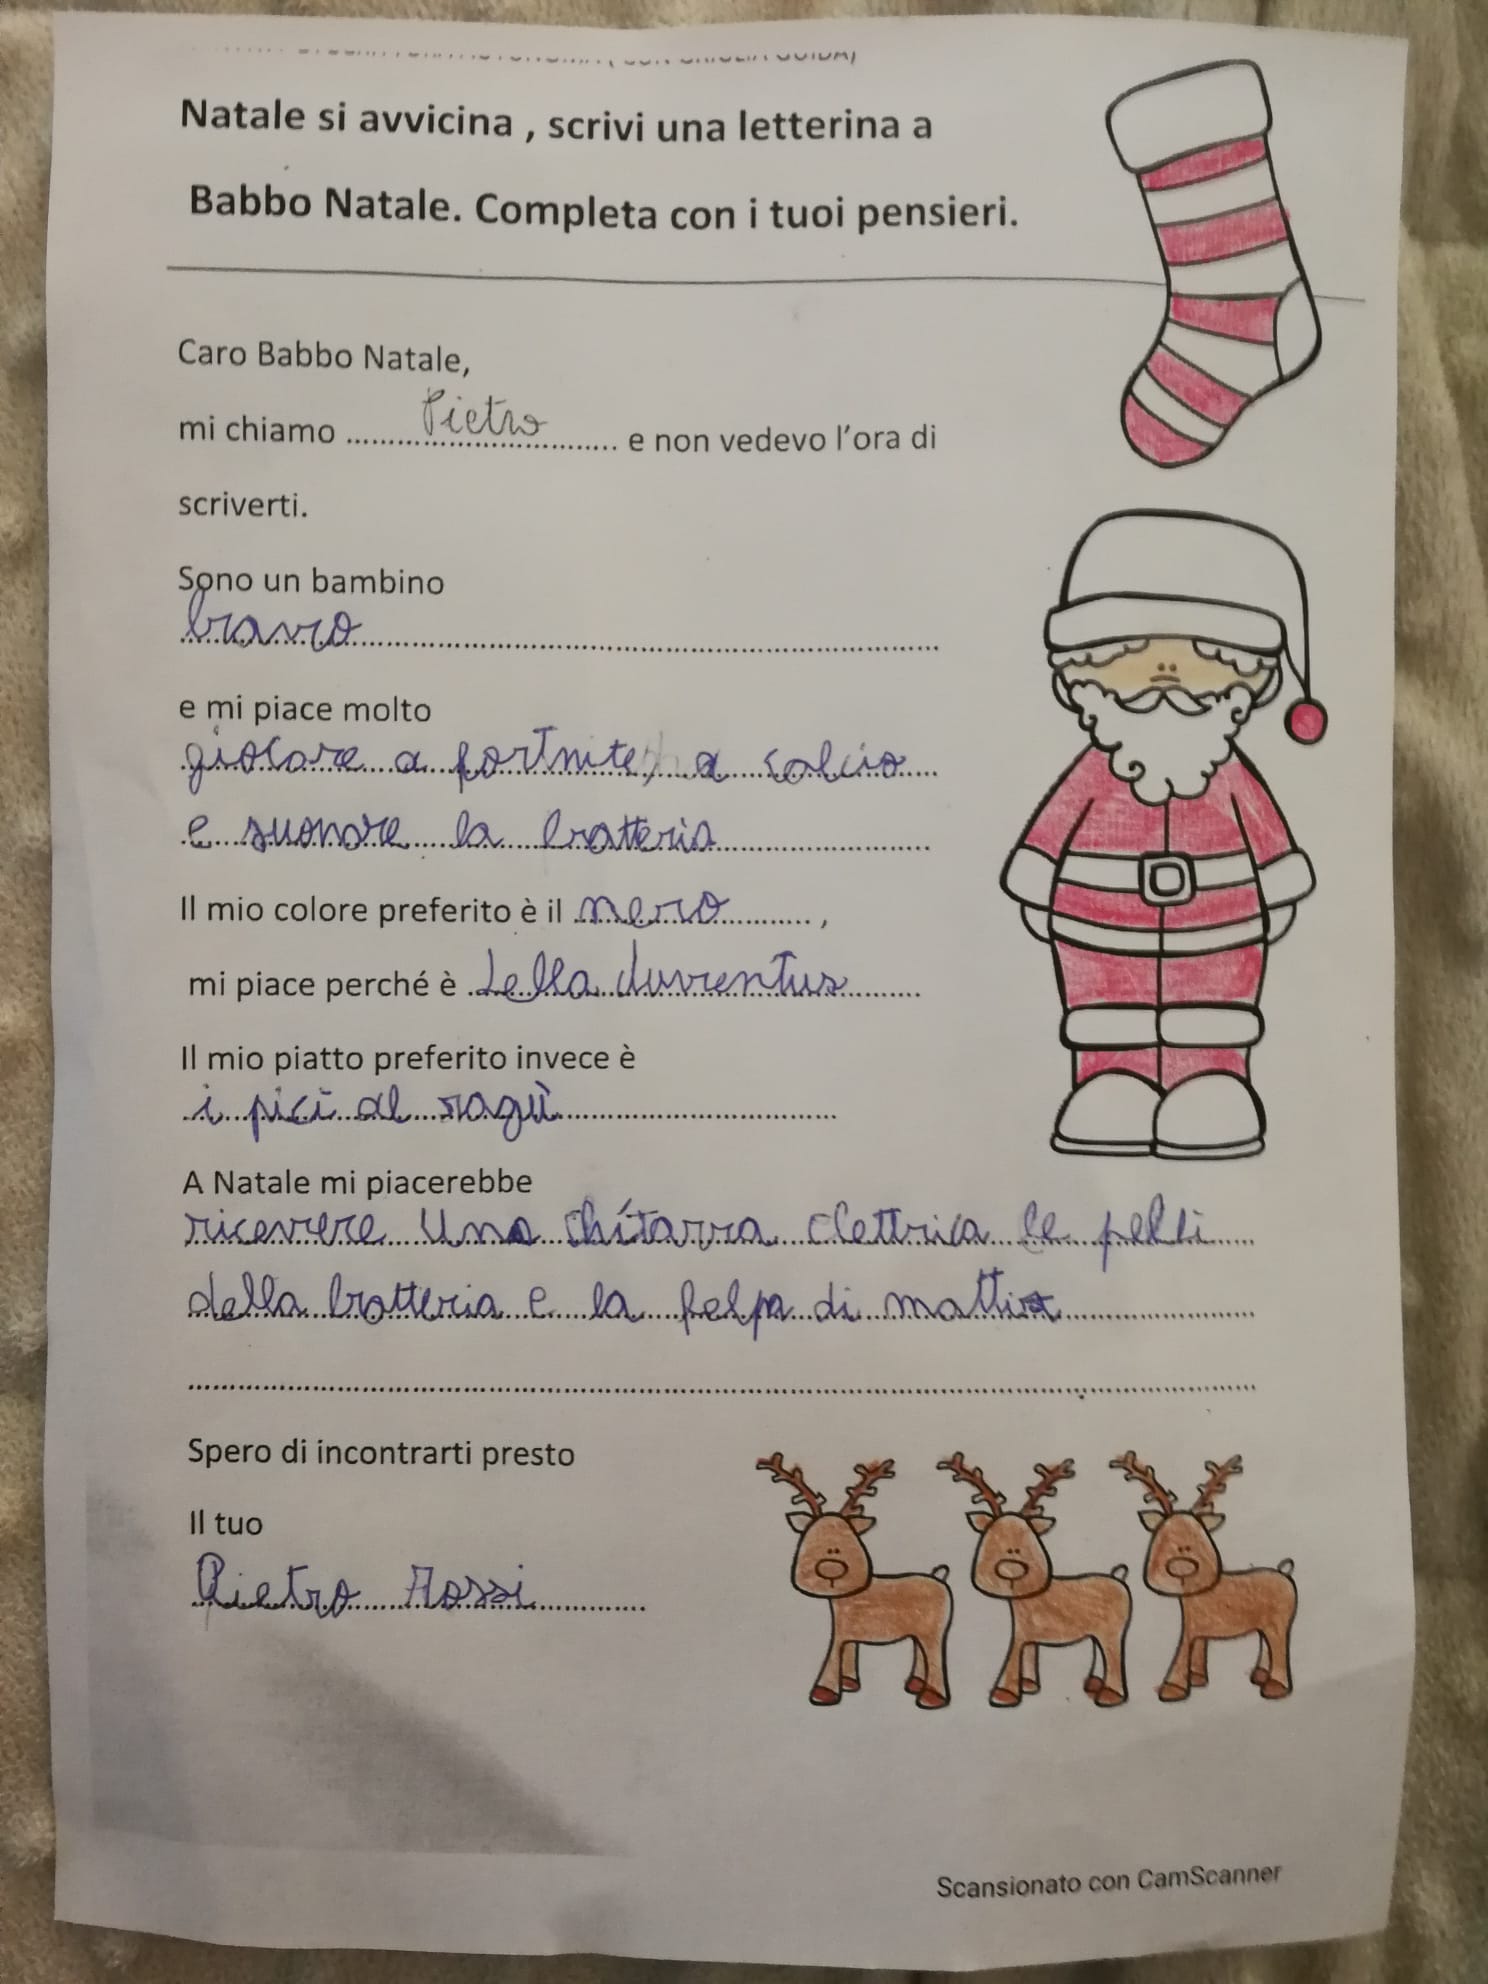 Natale si avvicina , scrivi una letterina a
Babbo Natale. Completa con i tuoi pensieri.
Caro Babbo Natale,
mi chiamo Pietro e non vedevo l'ora di
scriverti.
Sono un bambino
bravo
e mi piace molto
giocare a fortnite, a calcio
e suonare la batteria
Il mio colore preferito è il nero ,
mi piace perché è della Juventus
Il mio piatto preferito invece è
i pici al ragù
A Natale mi piacerebbe
ricevere una chitarra elettrica le pelli
della batteria e la felpa di mattia
Spero di incontrarti presto
Il tuo
Pietro Rossi
Scansionato con CamScanner